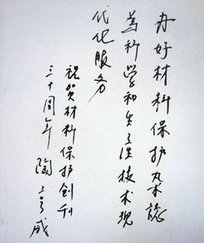 办好材料保护杂誌
为科学和生产技术现
代化服务
祝贺材料保护创刊
三十周年 陶亨咸